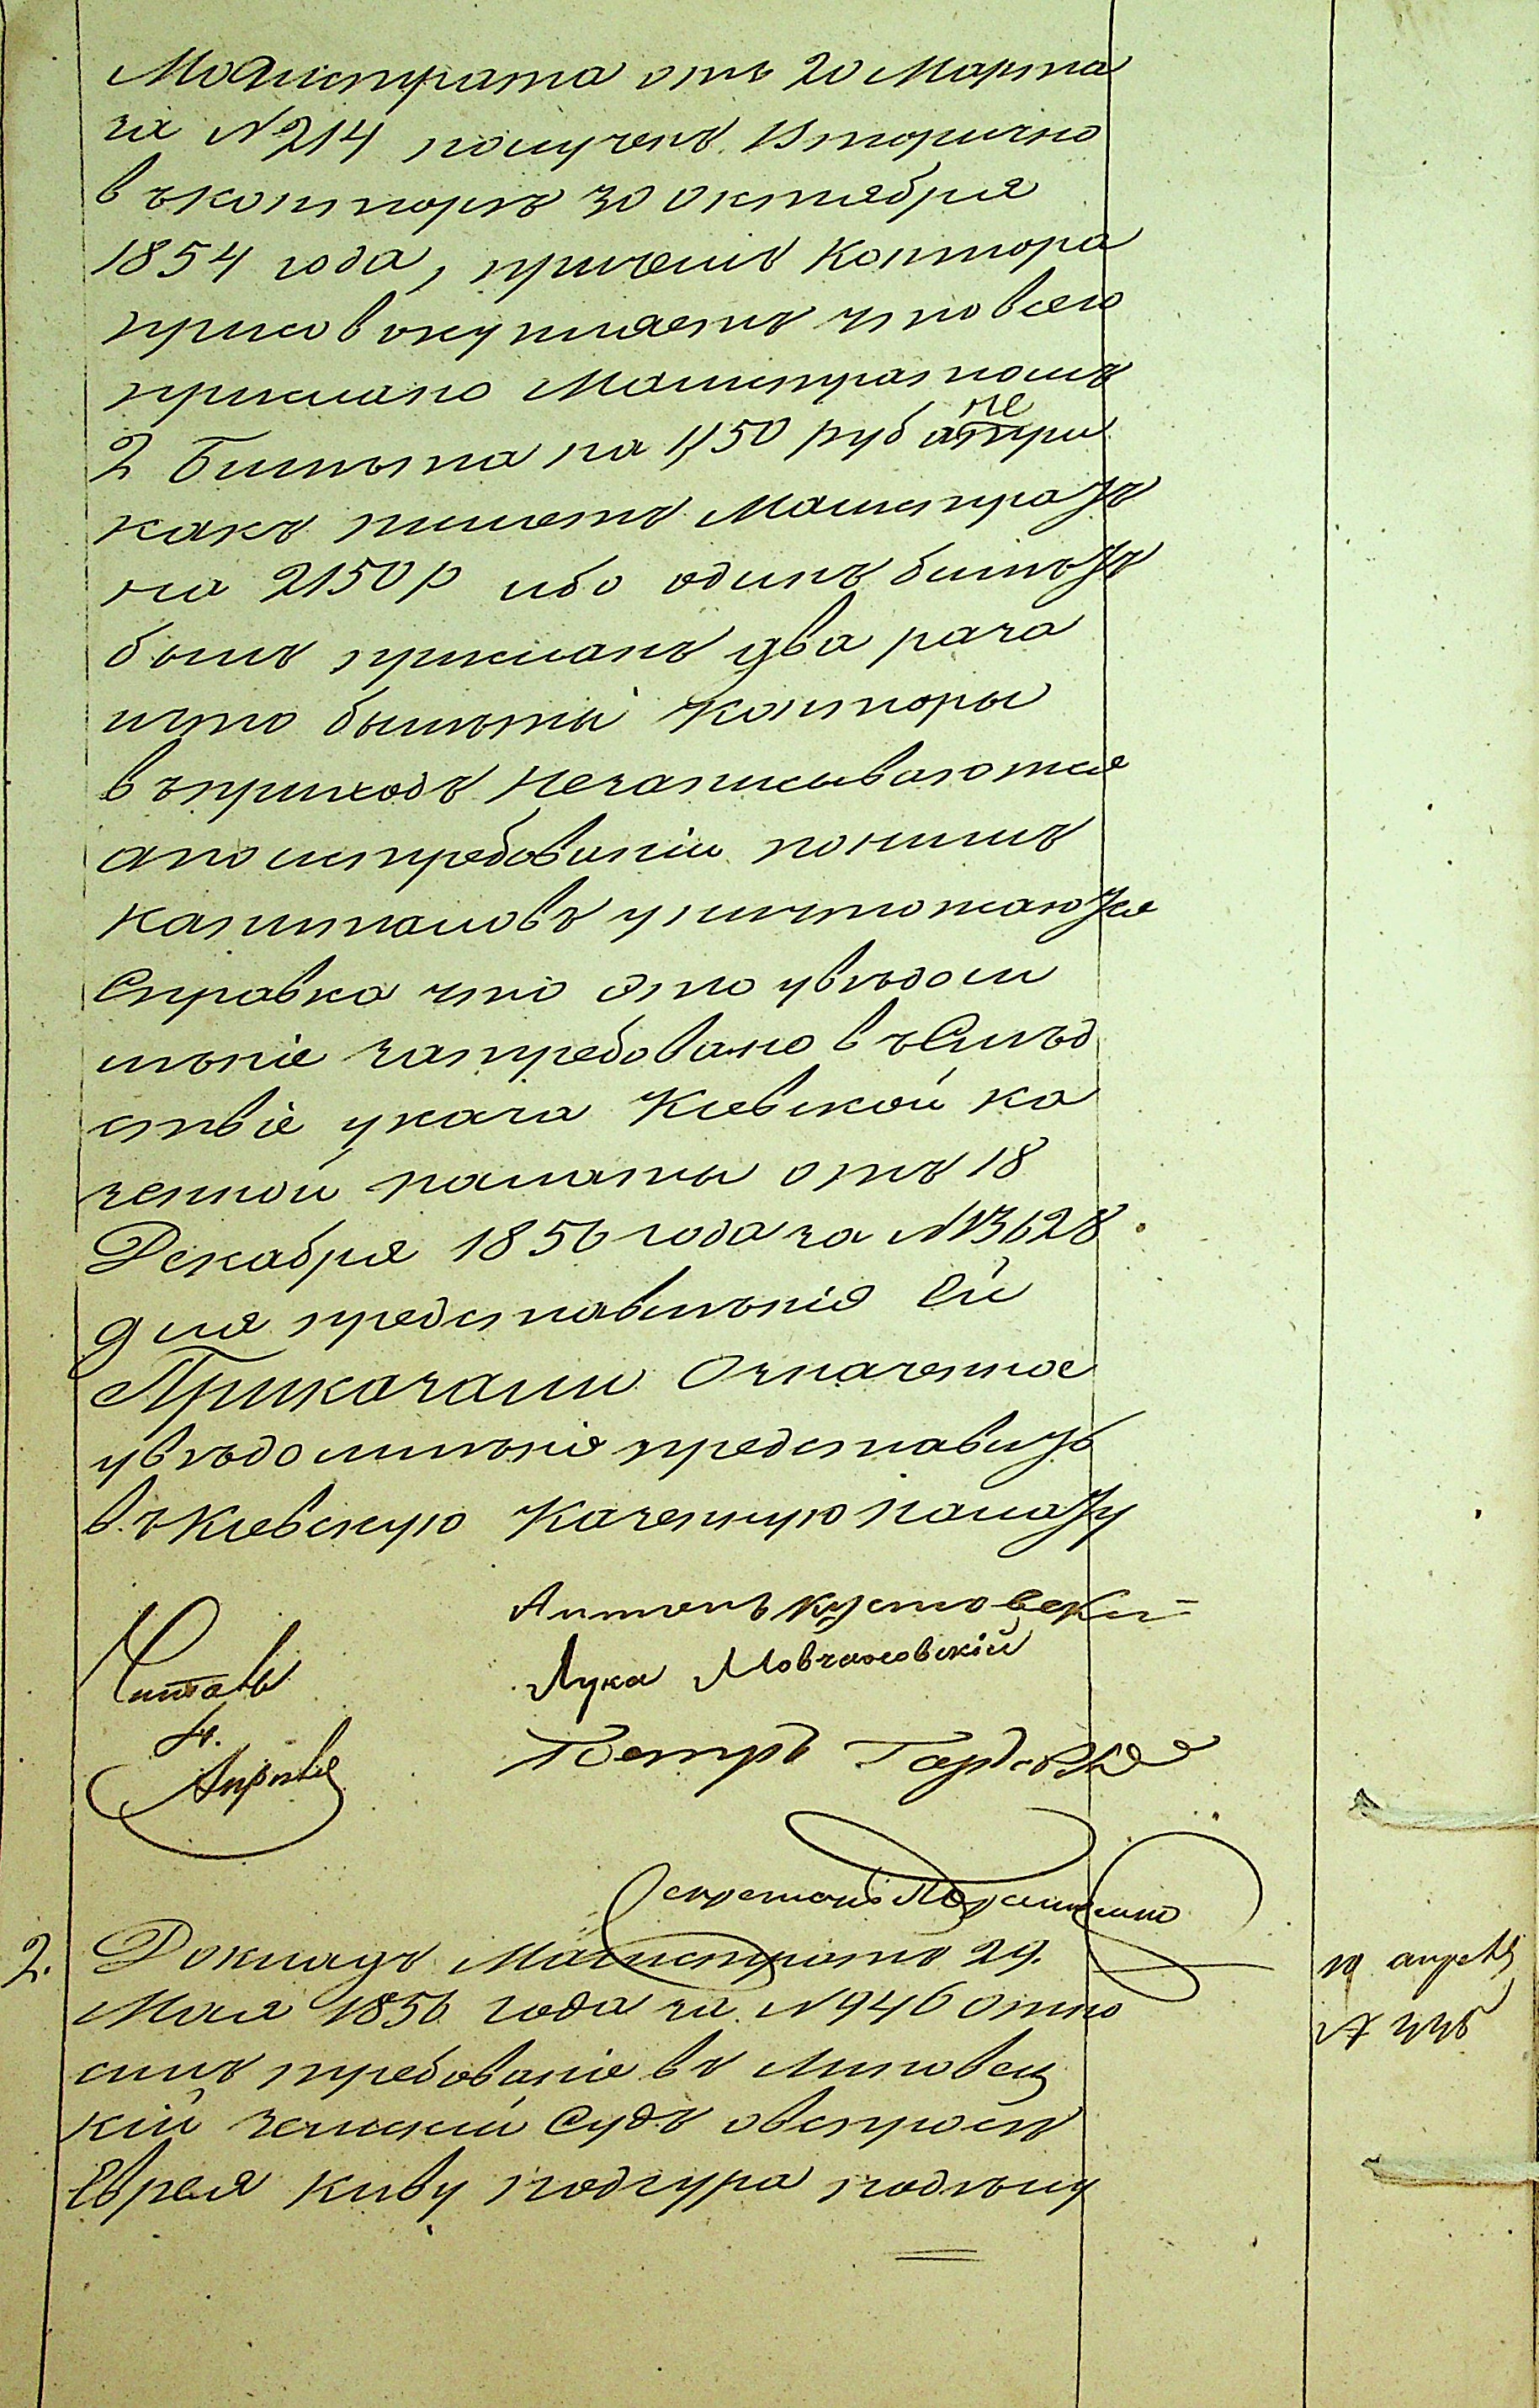 Магистрата отъ 20 Марта
за №214 полученъ вторично
въконторѣ 30 октября
1854 года, причемъ Контора
присовокупляетъ что всего
прислано Магистратомъ
2 билѣта на 1,150 руб а не три
какъ пишетъ Магистратъ
на 2150 р ибо одинъ билѣтъ
былъ присланъ два раза
ичто билѣты Конторы
въприходъ незаписываются
апоистребованіи понимъ
капиталовъ уничтожаются
Справка что это увѣдом
лѣніе затребовано въслѣд
ствіе указа Кіевской ка
зенной палаты отъ 18
Декабря 1856 года за №13628
для представленія Ей
Приказали Означенное
увѣдомлѣніе представить
въКіевскую Казенную палату
Антонъ Кустовски
Читалъ Лука Мовчановскій
Петръ
Секретарь
2. Докладъ Магистратъ 29.
Мая 1856 года за №946 отно
силъ требованіе въ Липовец
кій земскій Судъ овспросѣ
Еврея Киву подгура подлѣц
19 апрѣля
№ 446